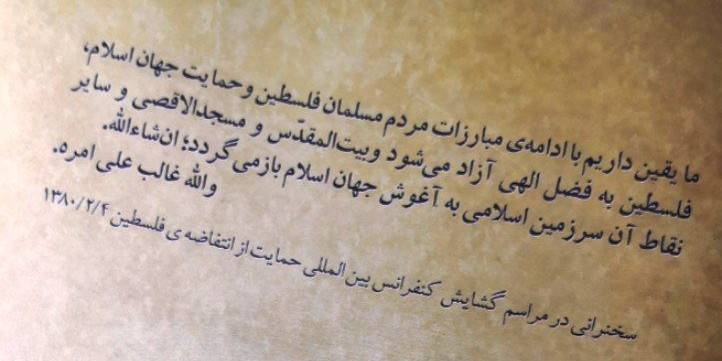 ما یقین داریم با ادامه‌ی مبارزات مردم مسلمان فلسطین و حمایت جهان اسلام،
فلسطین به فضل الهی آزاد می‌شود و بیت‌المقدّس و مسجدالاقصی و سایر
نقاط آن سرزمین اسلامی به آغوش جهان اسلام بازمی‌گردد؛ ان‌شاءالله.
والله غالب علی امره.
سخنرانی در مراسم گشایش کنفرانس بین المللی حمایت از انتفاضه ی فلسطین ۱۳۸۰/۲/۴